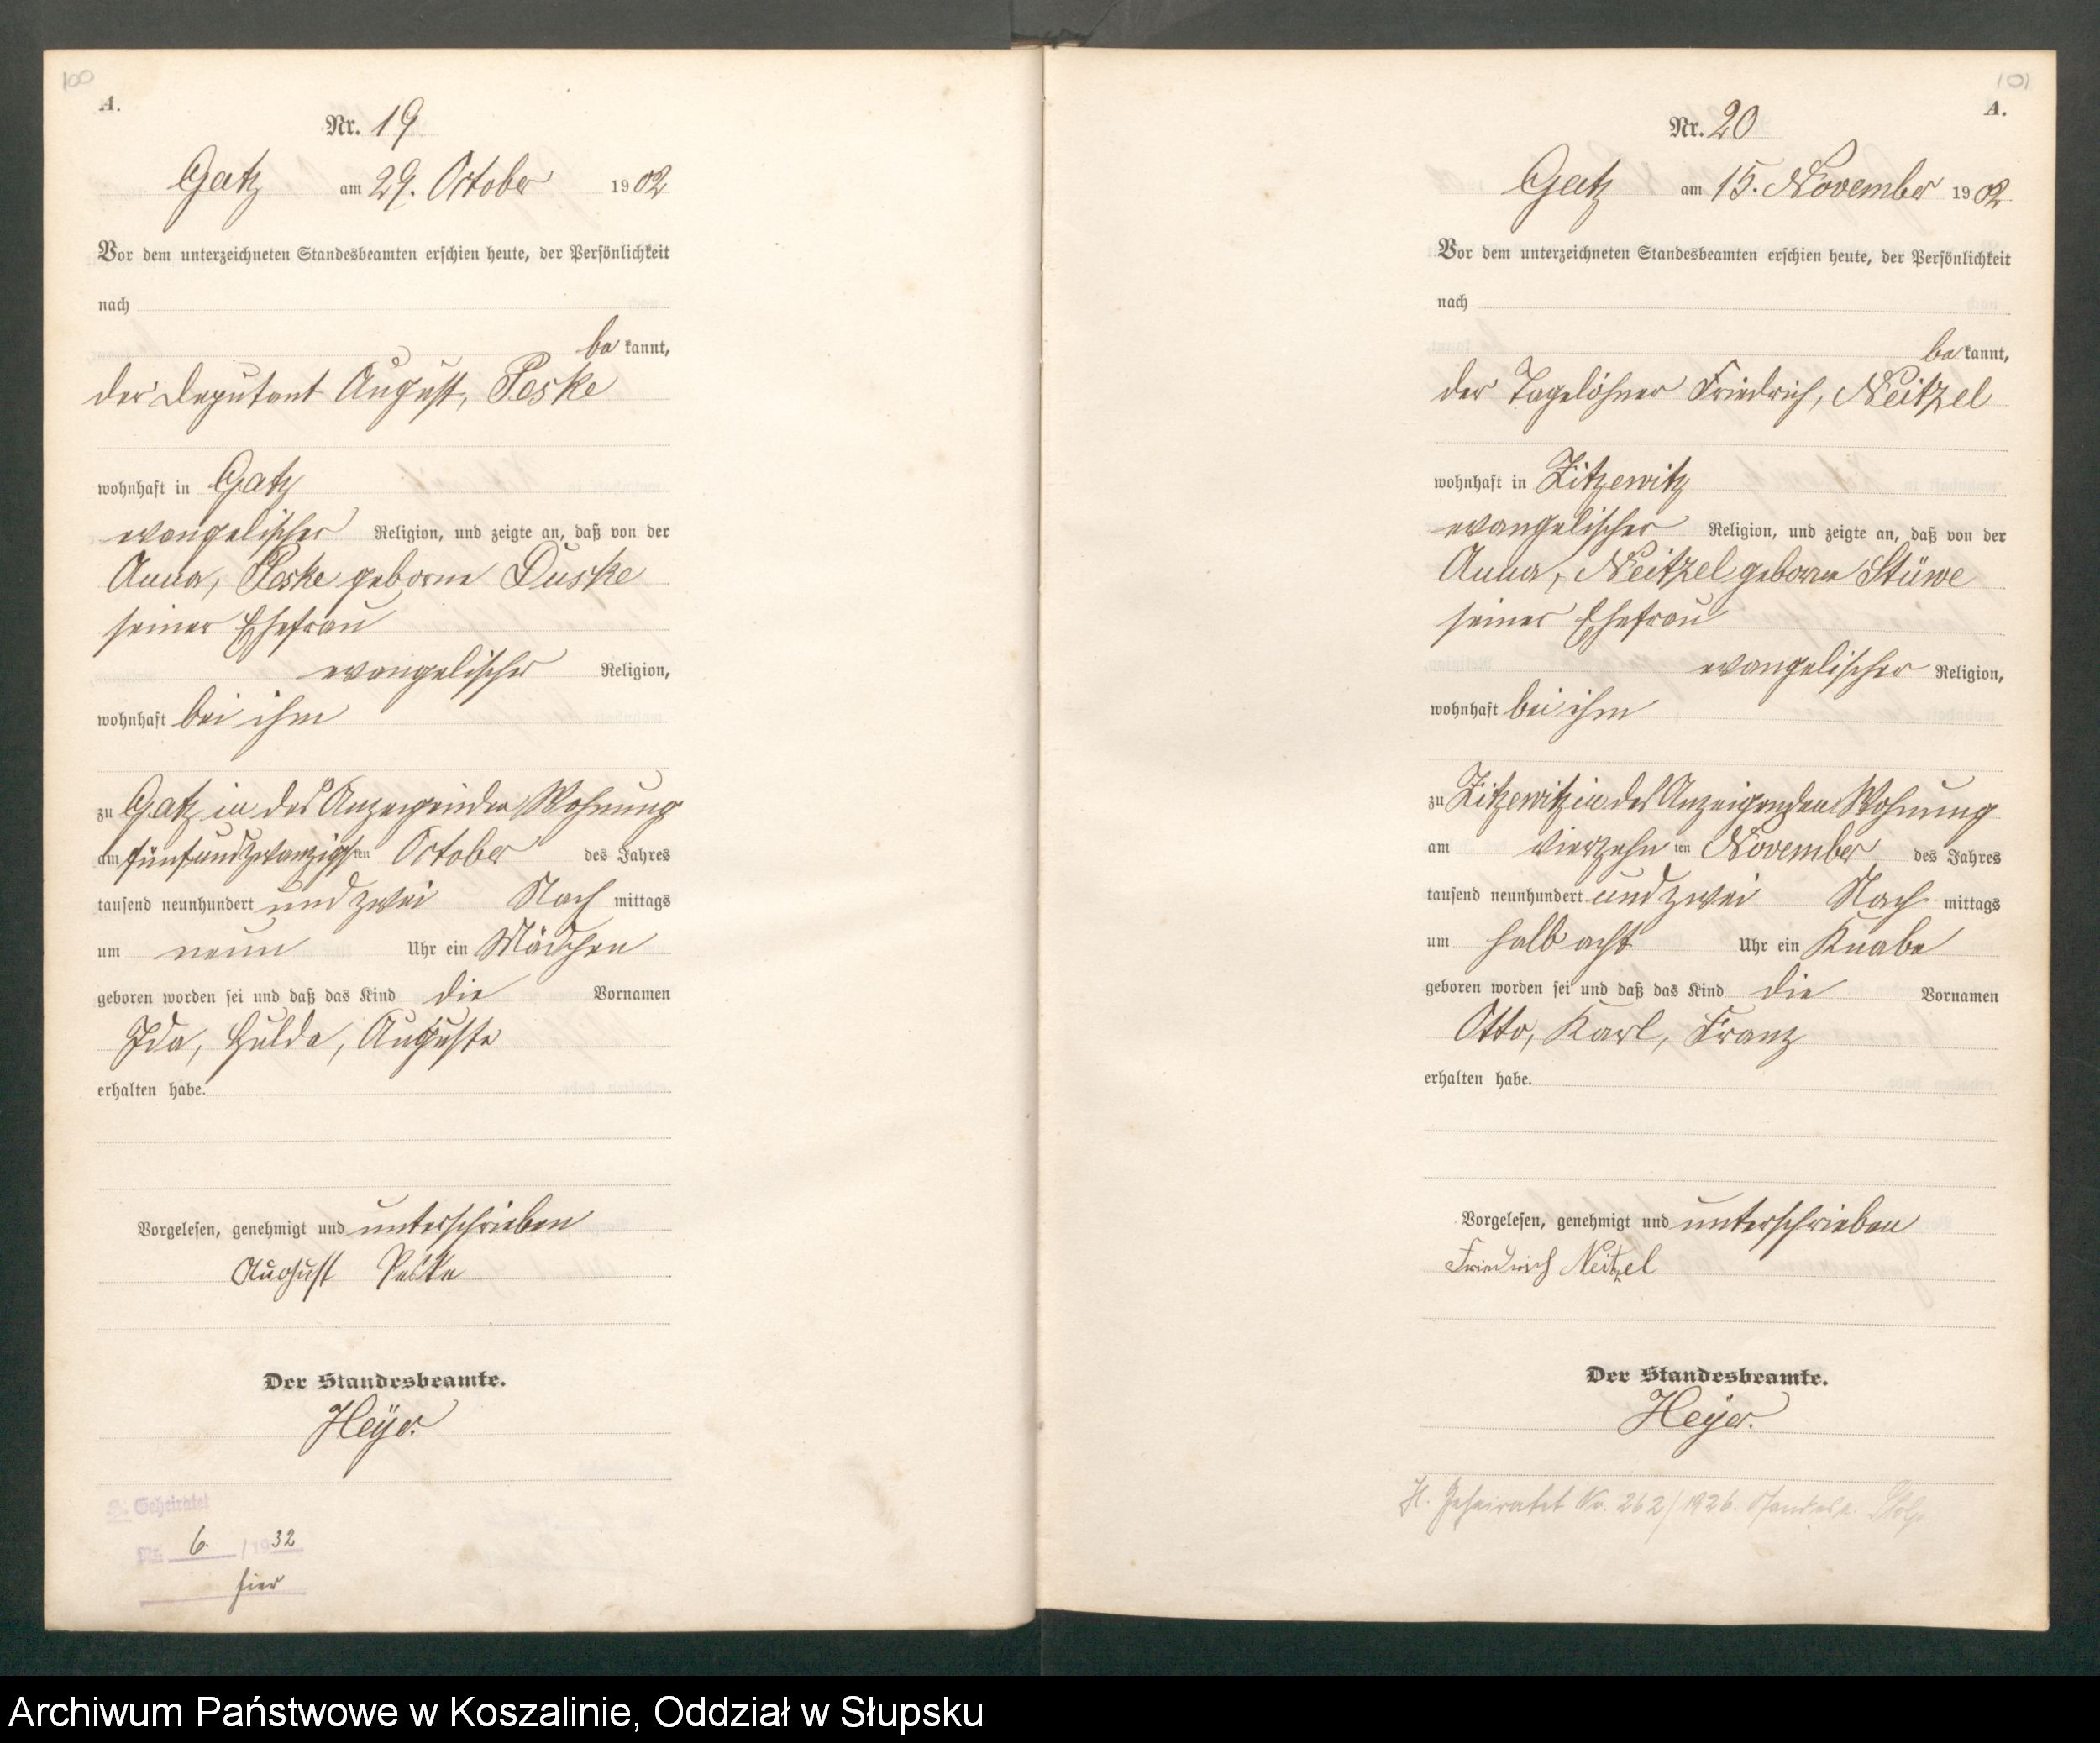 100
A.
Nr. 19
Gatz am 29. October 1902
Vor dem unterzeichneten Standesbeamten erschien heute, der Persönlichkeit
nach
be kannt,
der Deputant August, Peske
wohnhaft in Gatz
evangelischer Religion, und zeigte an, daß von der
Anna, Peske geborne Duske
seiner Ehefrau
evangelischer Religion,
wohnhaft bei ihm
zu Gatz in des Anzeigenden Wohnung
am fünfundzwanzigsten October des Jahres
tausend neunhundert und zwei Nach mittags
um neun Uhr ein Mädchen
geboren worden sei und daß das Kind die Vornamen
Ida, Hulda, Auguste
erhalten habe.
Vorgelesen, genehmigt und unterschrieben
August Peske
Der Standesbeamte.
Heyer.
H. Geheiratet
Nr. 6. / 1932
hier
101
A.
Nr. 20
Gatz am 15. November 1902
Vor dem unterzeichneten Standesbeamten erschien heute, der Persönlichkeit
nach
be kannt,
der Tagelöhner Friedrich, Neitzel
wohnhaft in Zitzewitz
evangelischer Religion, und zeigte an, daß von der
Anna, Neitzel geborne Stüwe
seiner Ehefrau
evangelischer Religion,
wohnhaft bei ihm
zu Zitzewitz in des Anzeigenden Wohnung
am vierzehn ten November des Jahres
tausend neunhundert und zwei Nach mittags
um halb acht Uhr ein Knabe
geboren worden sei und daß das Kind die Vornamen
Otto, Karl, Franz
erhalten habe.
Vorgelesen, genehmigt und unterschrieben
Friedrich Neitzel
Der Standesbeamte.
Heyer.
H. Geheiratet Nr. 262/1926. Standesa. Stolp
Archiwum Państwowe w Koszalinie, Oddział w Słupsku